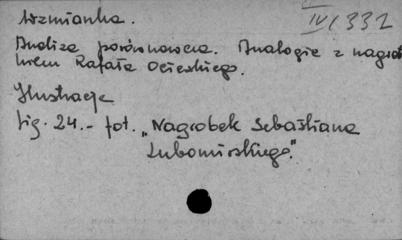 Wzmianka.
IV/332
Analiza porównawcza. Analogie z nagrob
kiem Rafała Ocieskiego.
Ilustracje
fig. 24. - fot. „Nagrobek Sebastiana
Lubomirskiego."